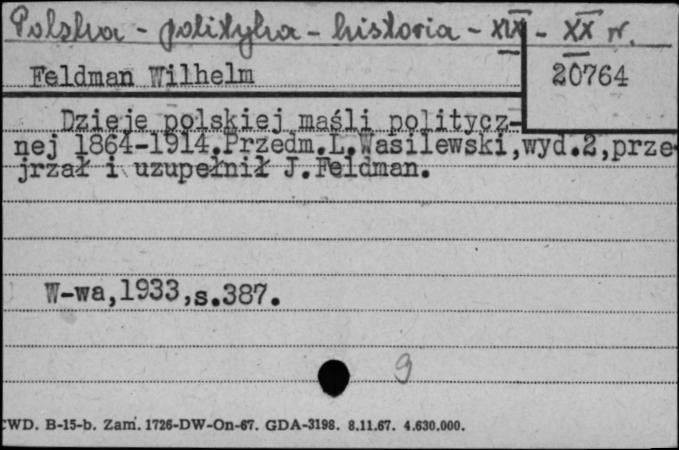 Polska - polityka - historia - XIX - XX w.
Feldman Wilhelm
20764
Dzieje polskiej maśli politycz-
nej 1864-1914.Przedm.L.Wasilewski,wyd.2,prze-
jrzał i uzupełnił J.Feldman.
W-wa,1933,s.387.
9
CWD. B-15-b. Zam. 1726-DW-On-67. GDA-3198. 8.11.67. 4.630.000.